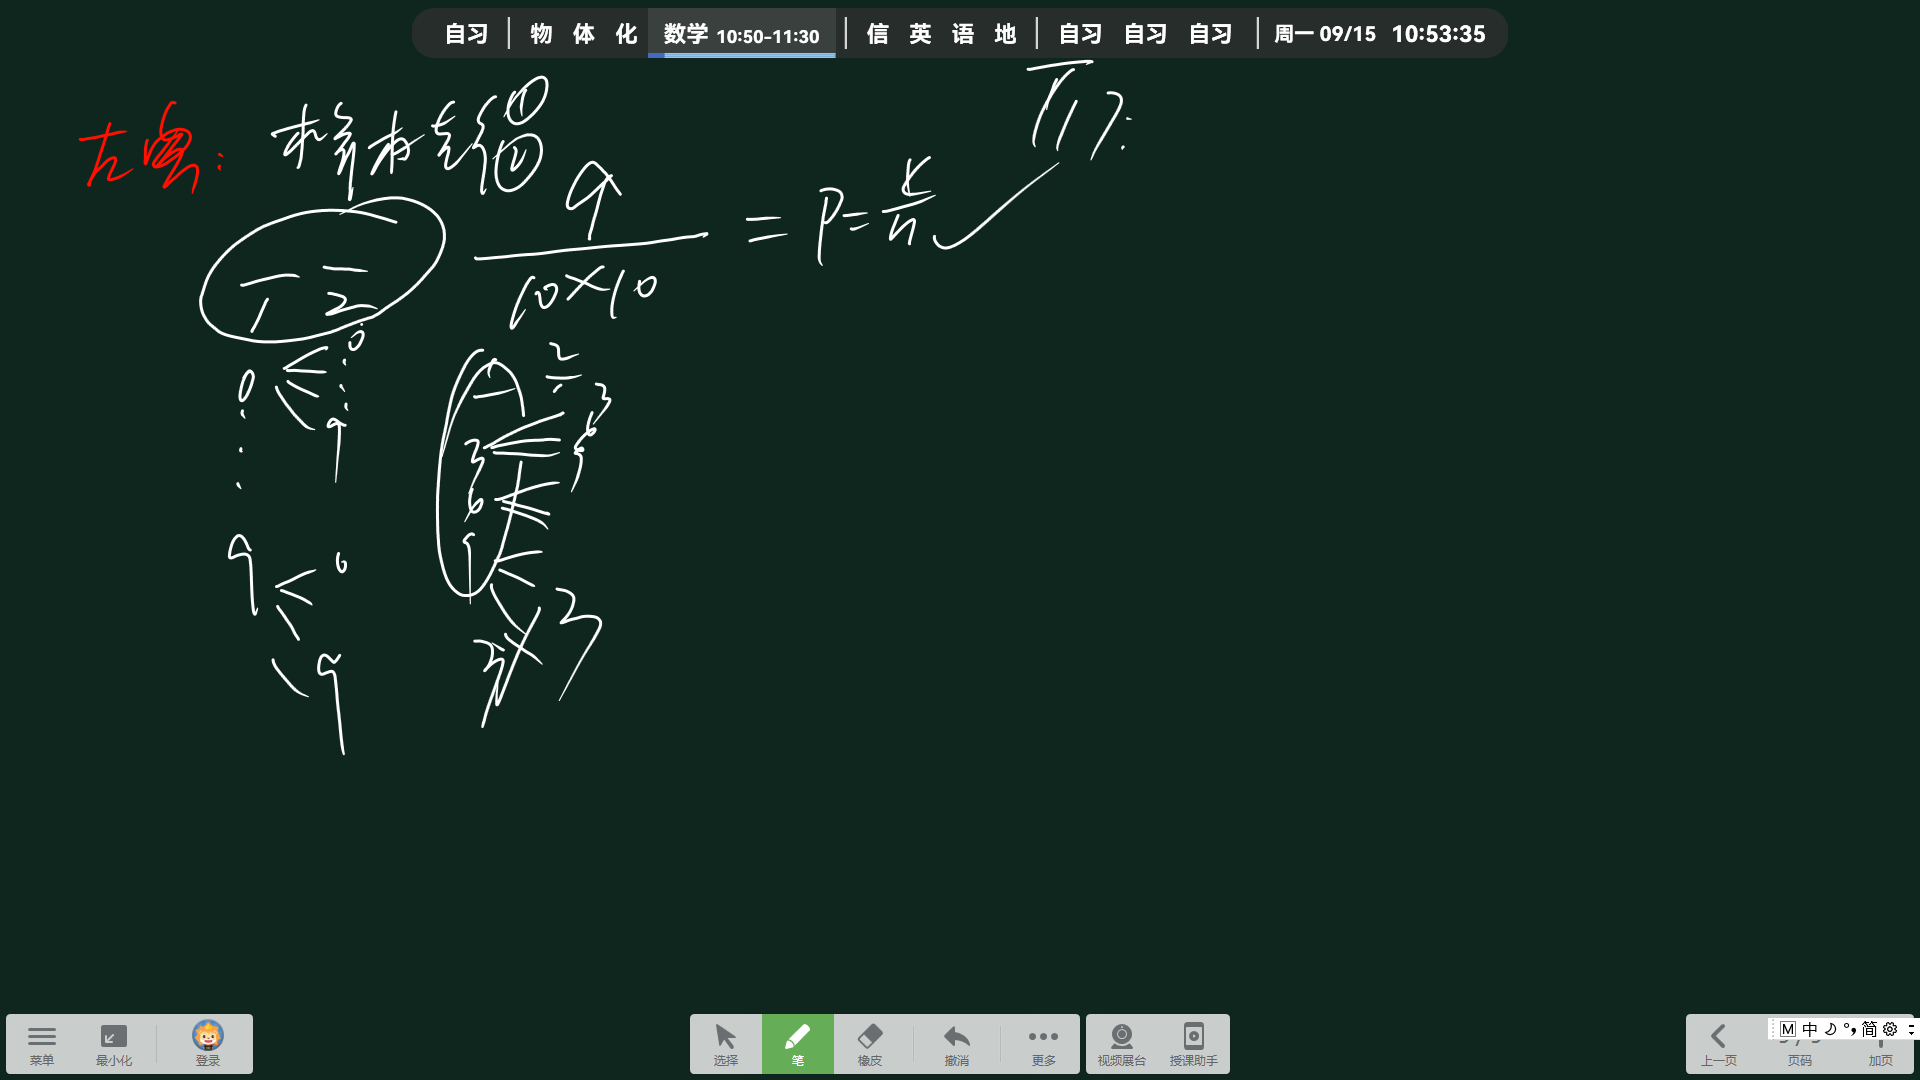 自习 物 体 化 数学 10:50-11:30 信 英 语 地 自习 自习 自习 周一 09/15 10:53:35
古典:
①
②
9
10×10
= P = k/n
1 2
0
0
9
9
0
9
1 2
3
6
9
3
6
9
3
菜单 最小化 登录 选择 笔 橡皮 撤消 更多 视频展台 授课助手 上一页 页码 加页
M 中 简